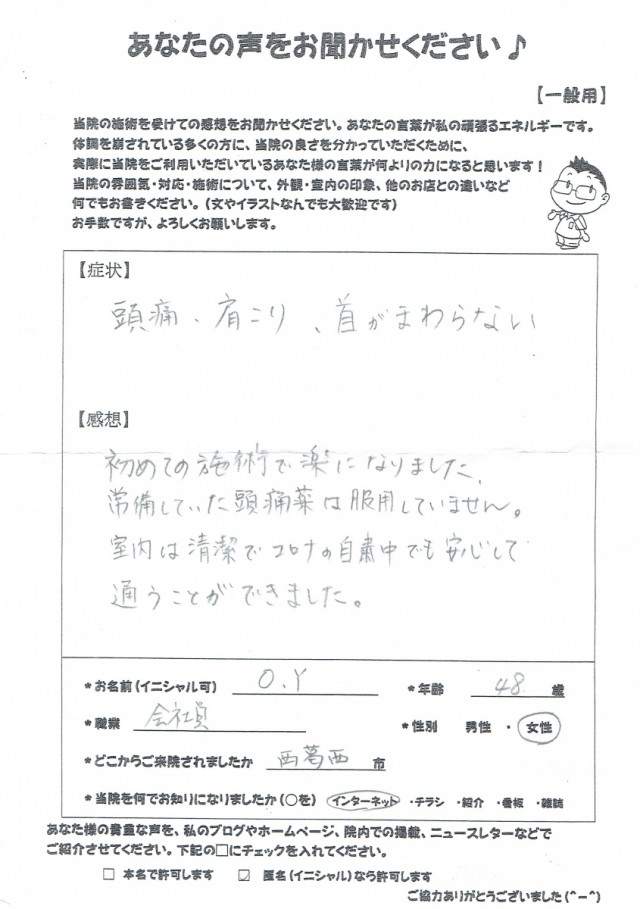 あなたの声をお聞かせください♪
【一般用】
当院の施術を受けての感想をお聞かせください。あなたの言葉が私の頑張るエネルギーです。
体調を崩されている多くの方に、当院の良さを分かっていただくために、
実際に当院をご利用いただいているあなた様の言葉が何よりの力になると思います！
当院の雰囲気・対応・施術について、外観・室内の印象、他のお店との違いなど
何でもお書きください。（文やイラストなんでも大歓迎です）
お手数ですが、よろしくお願いします。
【症状】
頭痛、肩こり、首がまわらない
【感想】
初めての施術で楽になりました。
常備していた頭痛薬は服用していません。
室内は清潔でコロナの自粛中でも安心して
通うことができました。
*お名前（イニシャル可） O.Y *年齢 48 歳
*職業 会社員 *性別 男性 ・ 女性
*どこからご来院されましたか 西葛西 市
*当院を何でお知りになりましたか（○を） インターネット ・チラシ ・紹介 ・看板 ・雑誌
あなた様の貴重な声を、私のブログやホームページ、院内での掲載、ニュースレターなどで
ご紹介させてください。下記の□にチェックを入れてください。
□ 本名で許可します ☑ 匿名（イニシャル）なら許可します
ご協力ありがとうございました（^ー^）